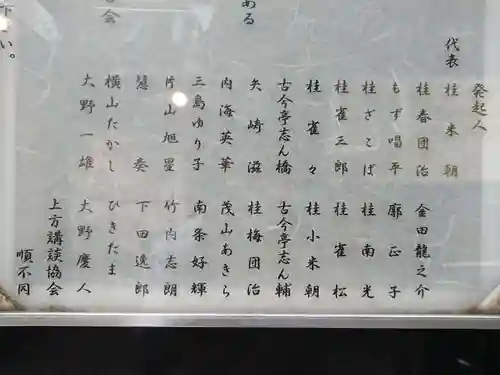 発起人
代表　桂米朝
桂春団治　金田龍之介
もず唱平　廓正子
桂ざこば　桂南光
桂雀三郎　桂雀松
桂雀々　桂小米朝
古今亭志ん橋　古今亭志ん輔
矢崎滋　桂梅団治
内海英華　茂山あきら
三島ゆり子　南条好輝
片山旭星　竹内志朗
慧奏　下田逸郎
横山たかし　ひきたま
大野一雄　大野慶人
上方講談協会
順不同
ある
会
下さい。